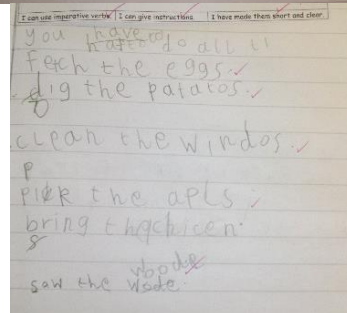 I can use imperative verbs I can give instructions I have made them short and clear.
you have to
hafto do all
fetch the eggs.
dig the patatos.
clean the windos.
p
pick the apls
bring the chicen.
8
woode
saw the wode.